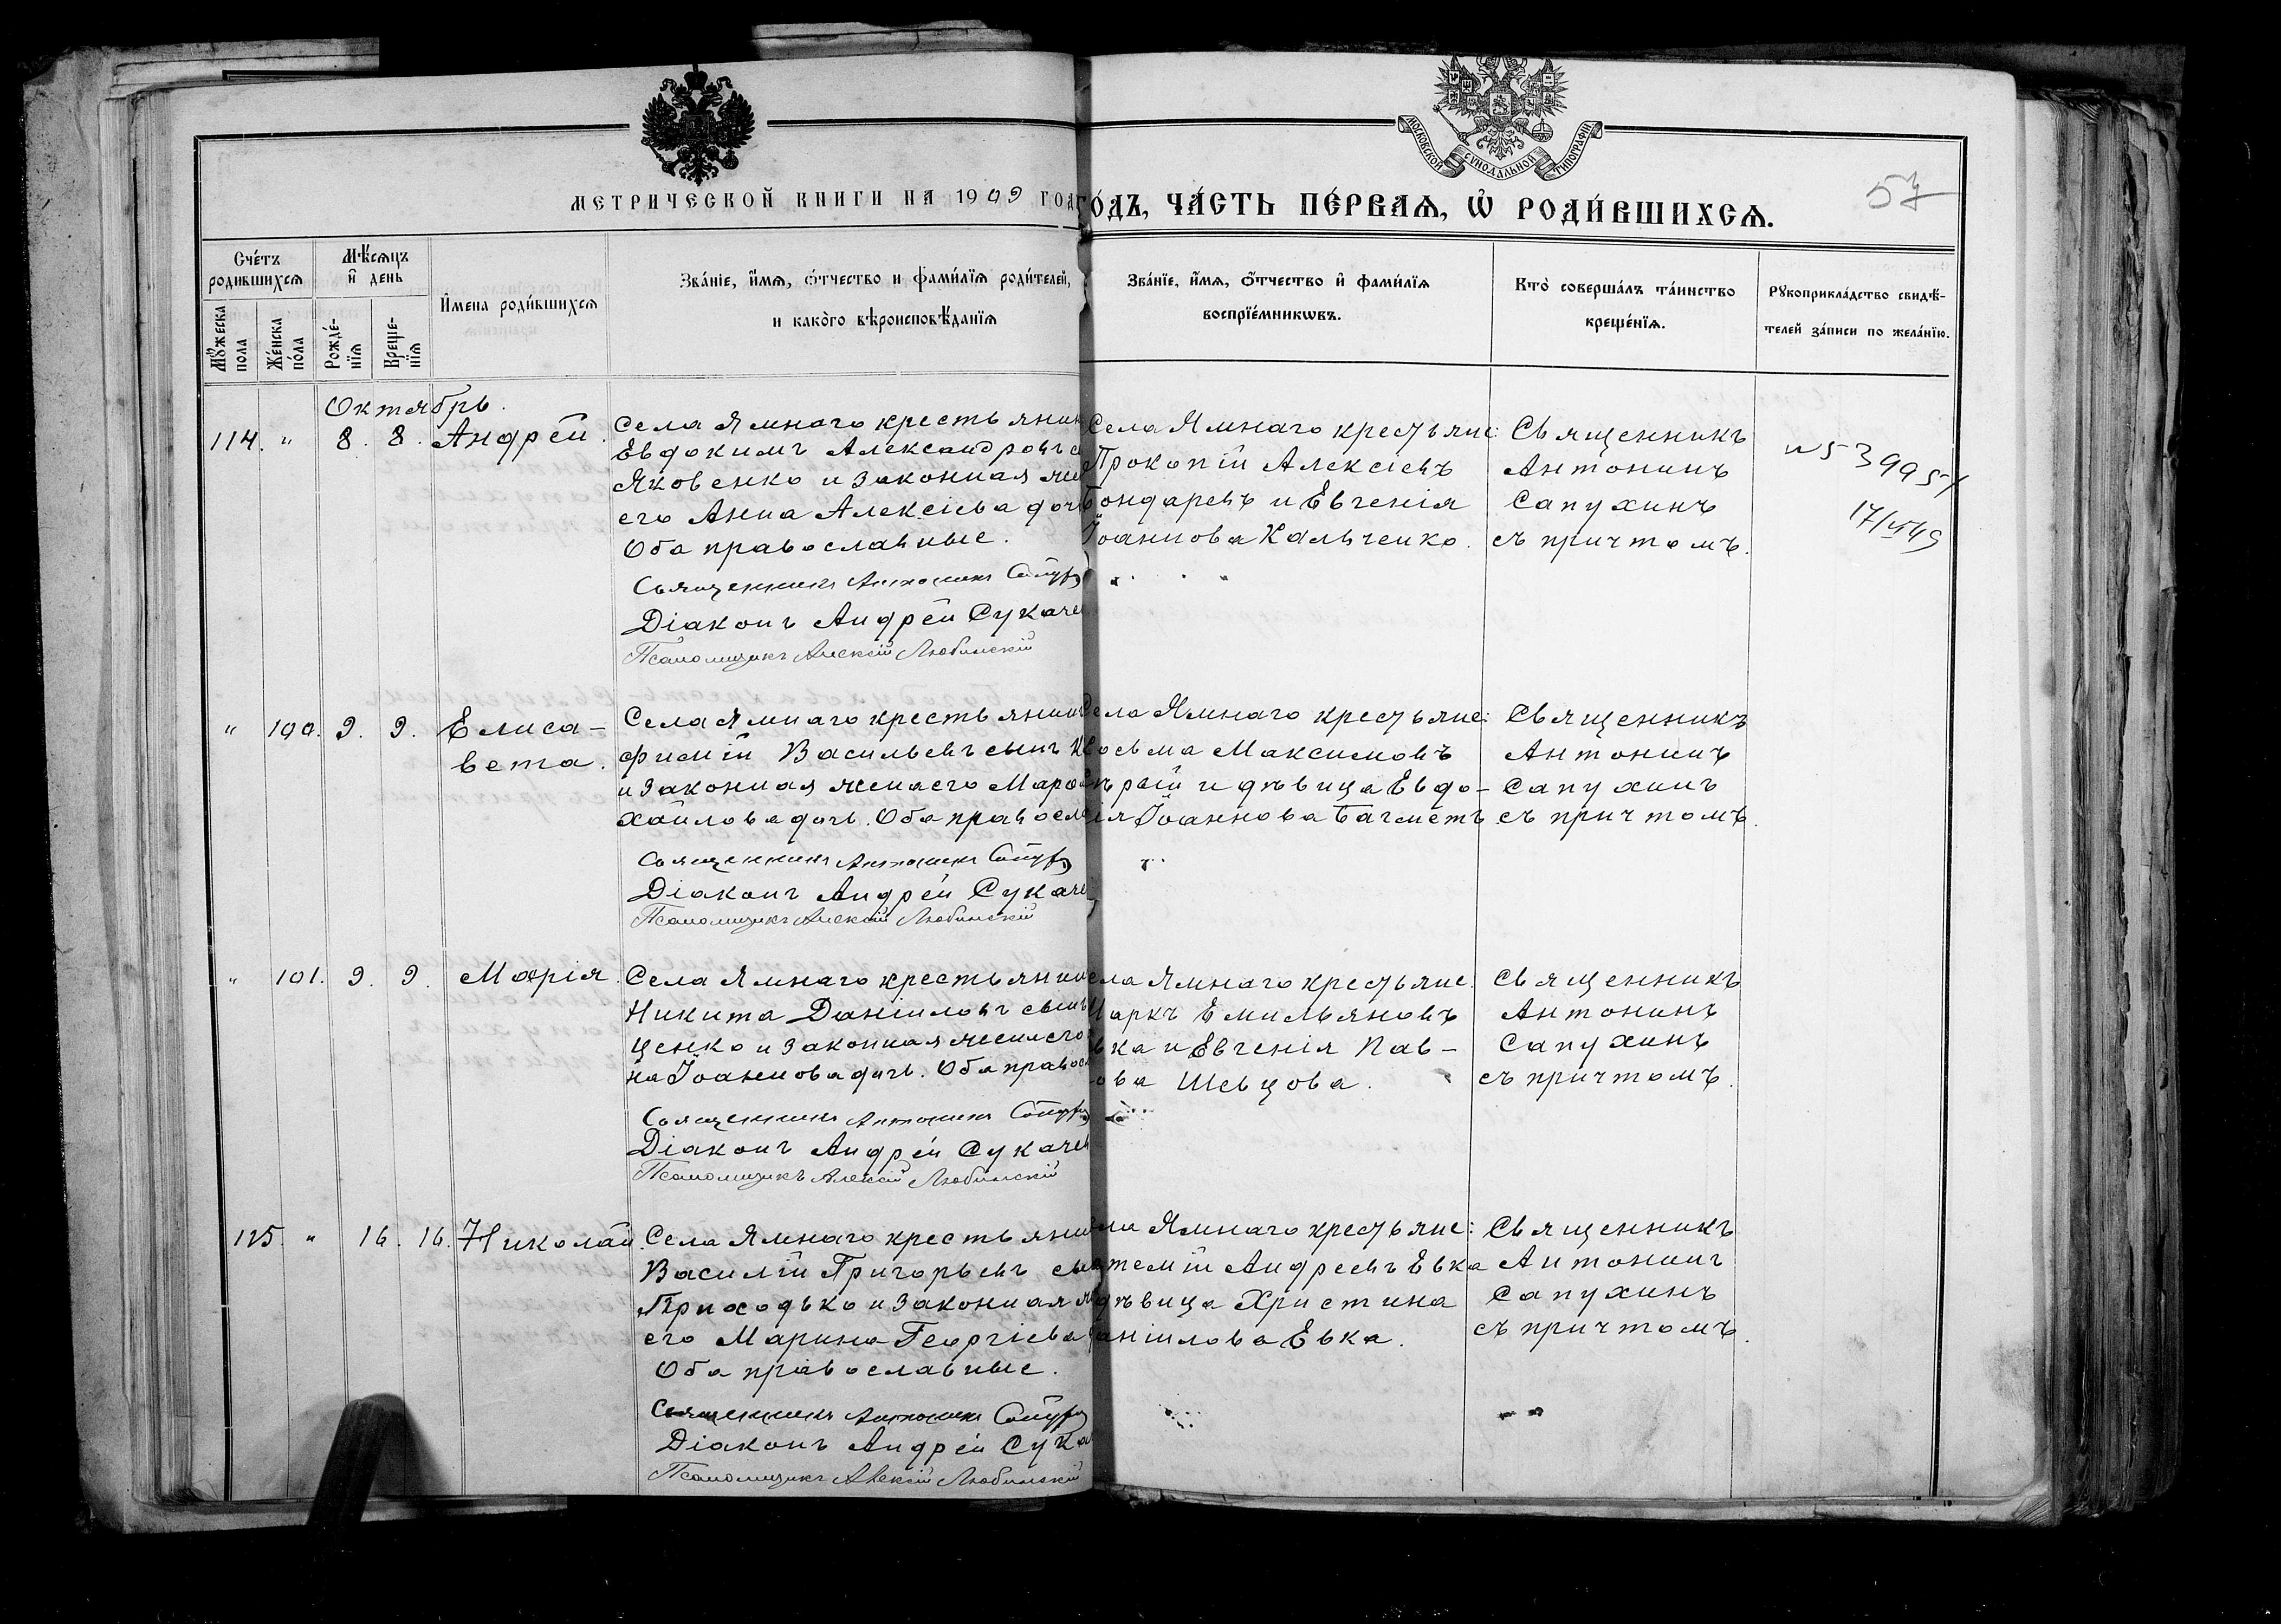 МОСКОВСКОЙ СѴНОДАЛЬНОЙ ТИПОГРАФІИ
МЕТРИЧЕСКОЙ КНИГИ НА 1909 ГОД
ГО́ДЪ, ЧА́СТЬ ПЕ́РВАѦ, Ѿ РОДИ́ВШИХСѦ.
57
Сче́тъ родившихсѧ
Мѣ́сѧцъ и҆ день
Мꙋ́жеска пола
Же́нска по́ла
Рожде́-нїѧ
Креще-нїѧ
И҆мена роди́вшихсѧ
Зва́нїе, и҆́мѧ, ѻ҆́тчество и фами́лїѧ роди́телей,
и како́го вѣроисповѣ́данїѧ
Зва́нїе, и҆́мѧ, ѻ҆́тчество и҆ фами́лїѧ
воспрїе́мникѡвъ.
Кто̀ соверша́лъ та́инство
креще́нїѧ.
Рꙋкоприкла́дство свидѣ́-
телей за́писи по жела́нїю.
Октябрь.
114. " 8. 8. Андрей.
Села Ямнаго крестьянин
Евдокимъ Александровъ с
Яковенко и законная же
его Анна Алексіева доч
Оба православные.
Священникъ Антонинъ Сапух
Діаконъ Андрей Сукаче
Псаломщикъ Алексій Любинскій
Села Ямнаго крестьяне:
Прокопій Алексіевъ
Бондаревъ и Евгенія
Іоаннова Кальченко.
Священникъ
Антонинъ
Сапухинъ
съ причтомъ.
" 100. 9. 9. Елиса-
вета.
Села Ямнаго крестьянин
фимій Васильевъ сынъ
и законная жена его
хайлова дочь. Оба правосл
Священникъ Антонинъ Сапух
Діаконъ Андрей Сукаче
Псаломщикъ Алексій Любинскій
ела Ямнаго крестьяне:
осьма Максимовъ
и дѣвица Евдо-
ія Іоаннова Багметъ
Священникъ
Антонинъ
Сапухинъ
съ причтомъ.
" 101. 9. 9. Марія.
Села Ямнаго крестьянин
Никита Даніиловъ сынъ
ценко и законная жена его
на Іоаннова дочь. Оба правос
Священникъ Антонинъ Сапух
Діаконъ Андрей Сукаче
Псаломщикъ Алексій Любинскій
ела Ямнаго крестьяне.
Маркъ Емильяновъ
вка и Евгенія Пав-
ова Шевцова.
Священникъ
Антонинъ
Сапухинъ
съ причтомъ.
115. " 16. 16. Николай.
Села Ямнаго крестьянин
Василій Григорьевъ сы
Приходько и законная ж
его Марина Георгіева
Оба православные.
Священникъ Антонинъ Сапух
Діаконъ Андрей Сука
Псаломщикъ Алексій Любинскій
ла Ямнаго крестьяне:
ртемій Андреевъ Евка
дѣвица Христина
аніилова Евка.
Священникъ
Антонинъ
Сапухинъ
съ причтомъ.